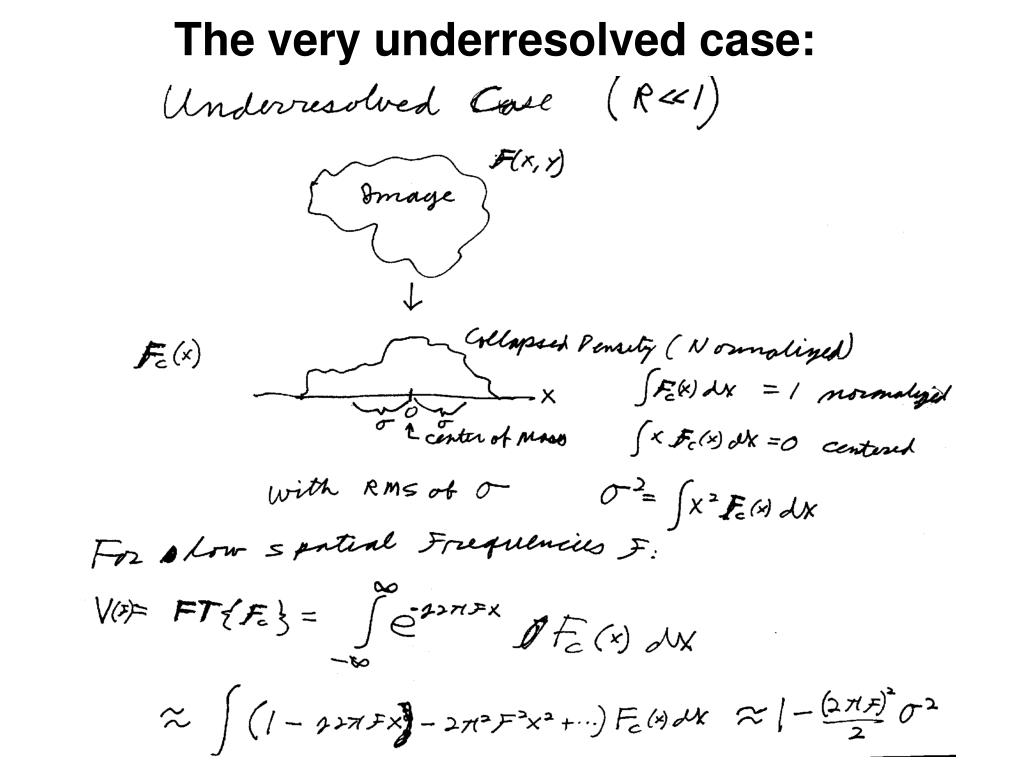 The very underresolved case:
Underresolved Case (R<<1)
F(x, y)
Image
↓
F_c(x)
Collapsed Density (Normalized)
x
∫F_c(x) dx = 1 normalized
σ 0 σ
↑ center of mass
∫x F_c(x) dx = 0 centered
with RMS of σ σ² = ∫x² F_c(x) dx
For low spatial Frequencies F:
V(F) = FT{F_c} = ∫_{-∞}^{∞} e^{-j2πFx} F_c(x) dx
≈ ∫(1 - j2πFx - 2π²F²x² + ...) F_c(x) dx ≈ 1 - (2πF)²/2 σ²